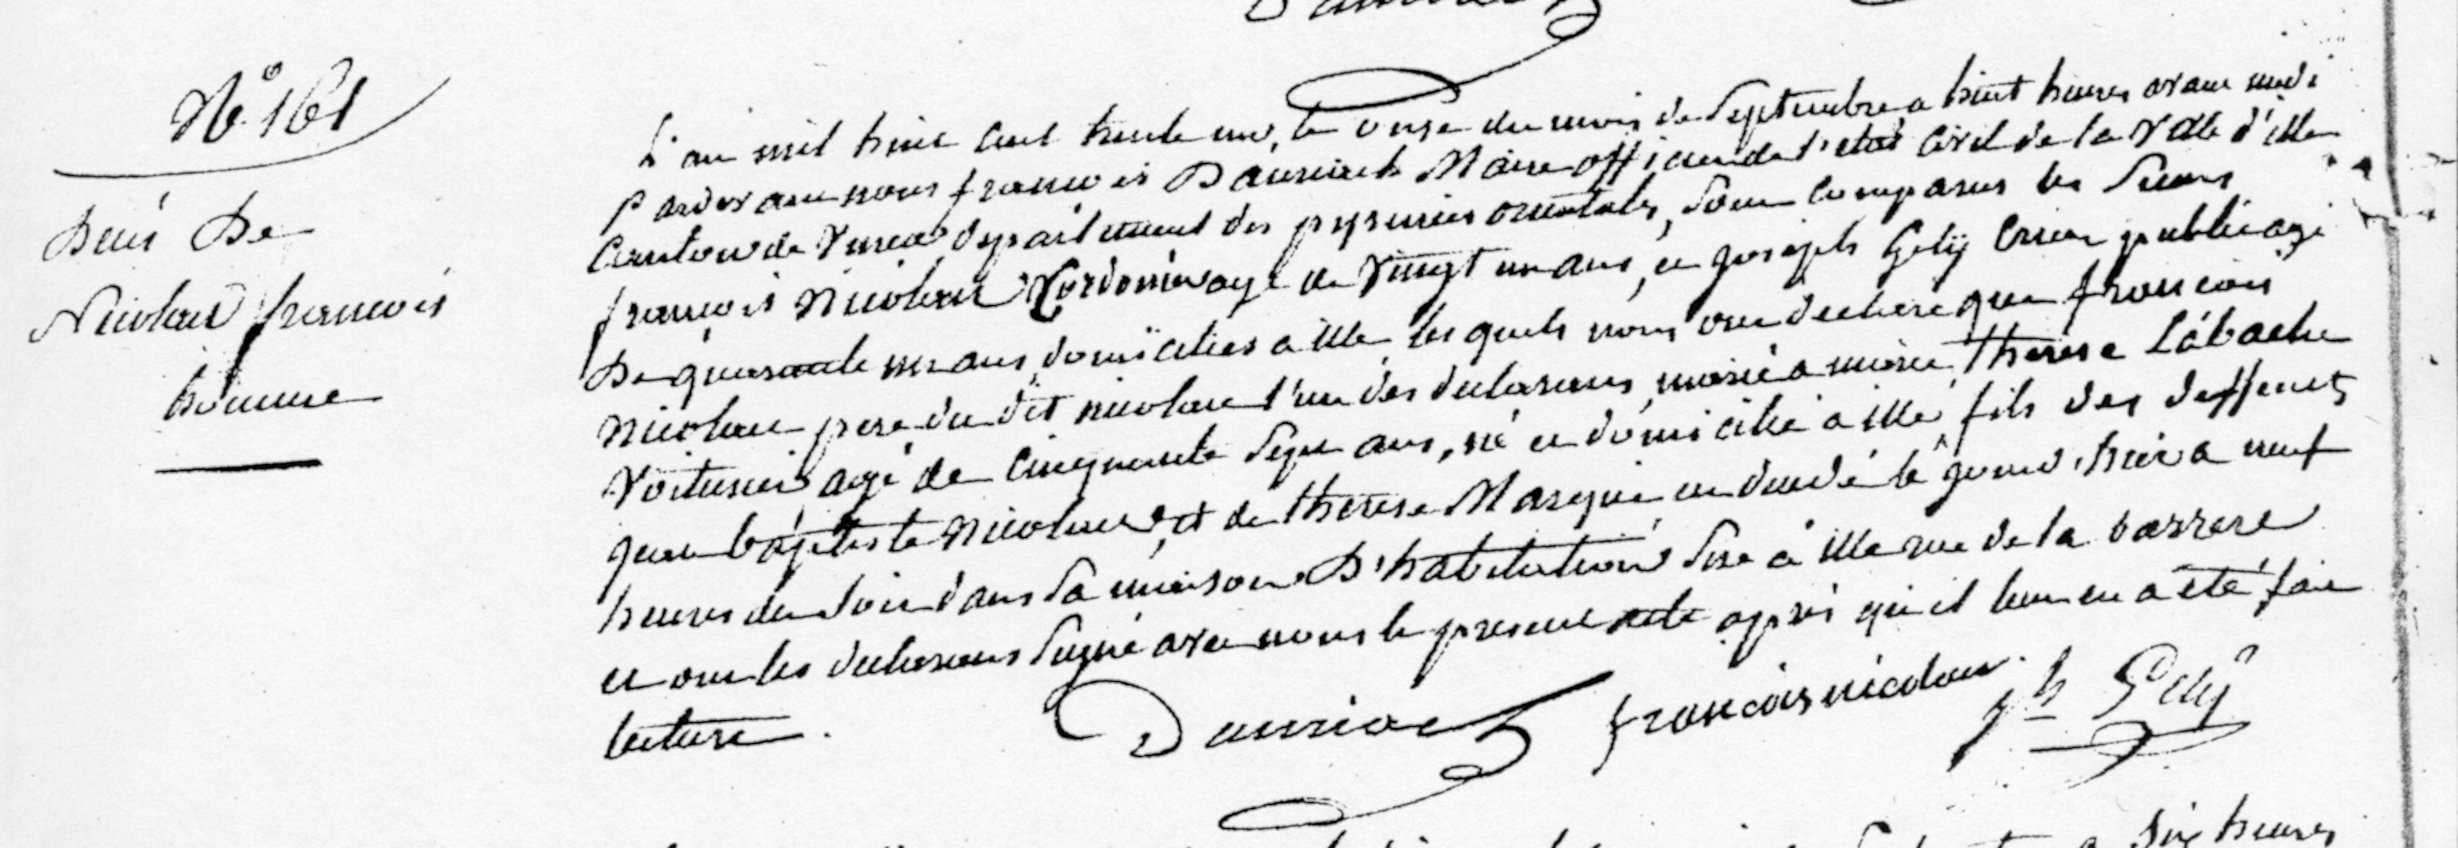 N° 161
Décés De
Nicolau françois
homme
L'an mil huit cent trente un, le onze du mois de Septembre a huit heures avant midi
Pardevant nous françois Dauriach Maire officier de l'etat Civil de la Ville d'ille
Canton de Vinça, departement des pyrenées orientales, sont comparus les Sieurs
françois Nicolau Cordonier agé de Vingt un ans, et joseph Gely Crieur public agé
De quarante un ans, domiciliés a ille, les quels nous ont declaré que françois
Nicolau pere du dit nicolau l'un des declarans, marié a therese Labache
Voiturier agé de Cinquante Sept ans, né et domicilié a ille, fils des deffunts
jean baptiste Nicolau, et de therese Marquié est decedé le jour d'hier a neuf
heures du Soir dans Sa maison D'habitation Sise à ille rue de la barrere
et ont les declarans Signé avec nous le present acte après qu'il leur en a été fait
lecture.
Dauriach françois nicolau jh Gely
Six heures